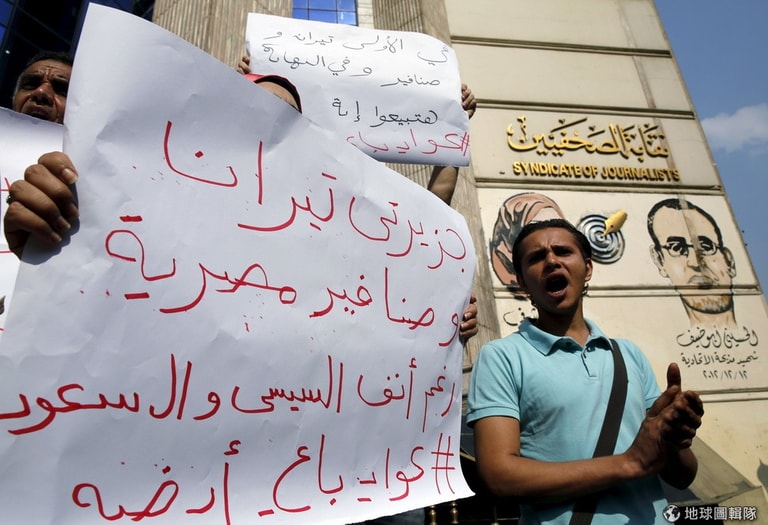 في الأولى تيران و
صنافير وفي النهاية
هتبيعوا إية
#عواد_باع
نقابة الصحفيين
SYNDICATE OF JOURNALISTS
جزيرتي تيران
وصنافير مصرية
رغم أنف السيسى وال سعود
#عواد_باع
أرضه
الحسيني ابوضيف
شهيد مذبحة الاتحادية
٢٠١٢/١٢/١٢
地球圖輯隊